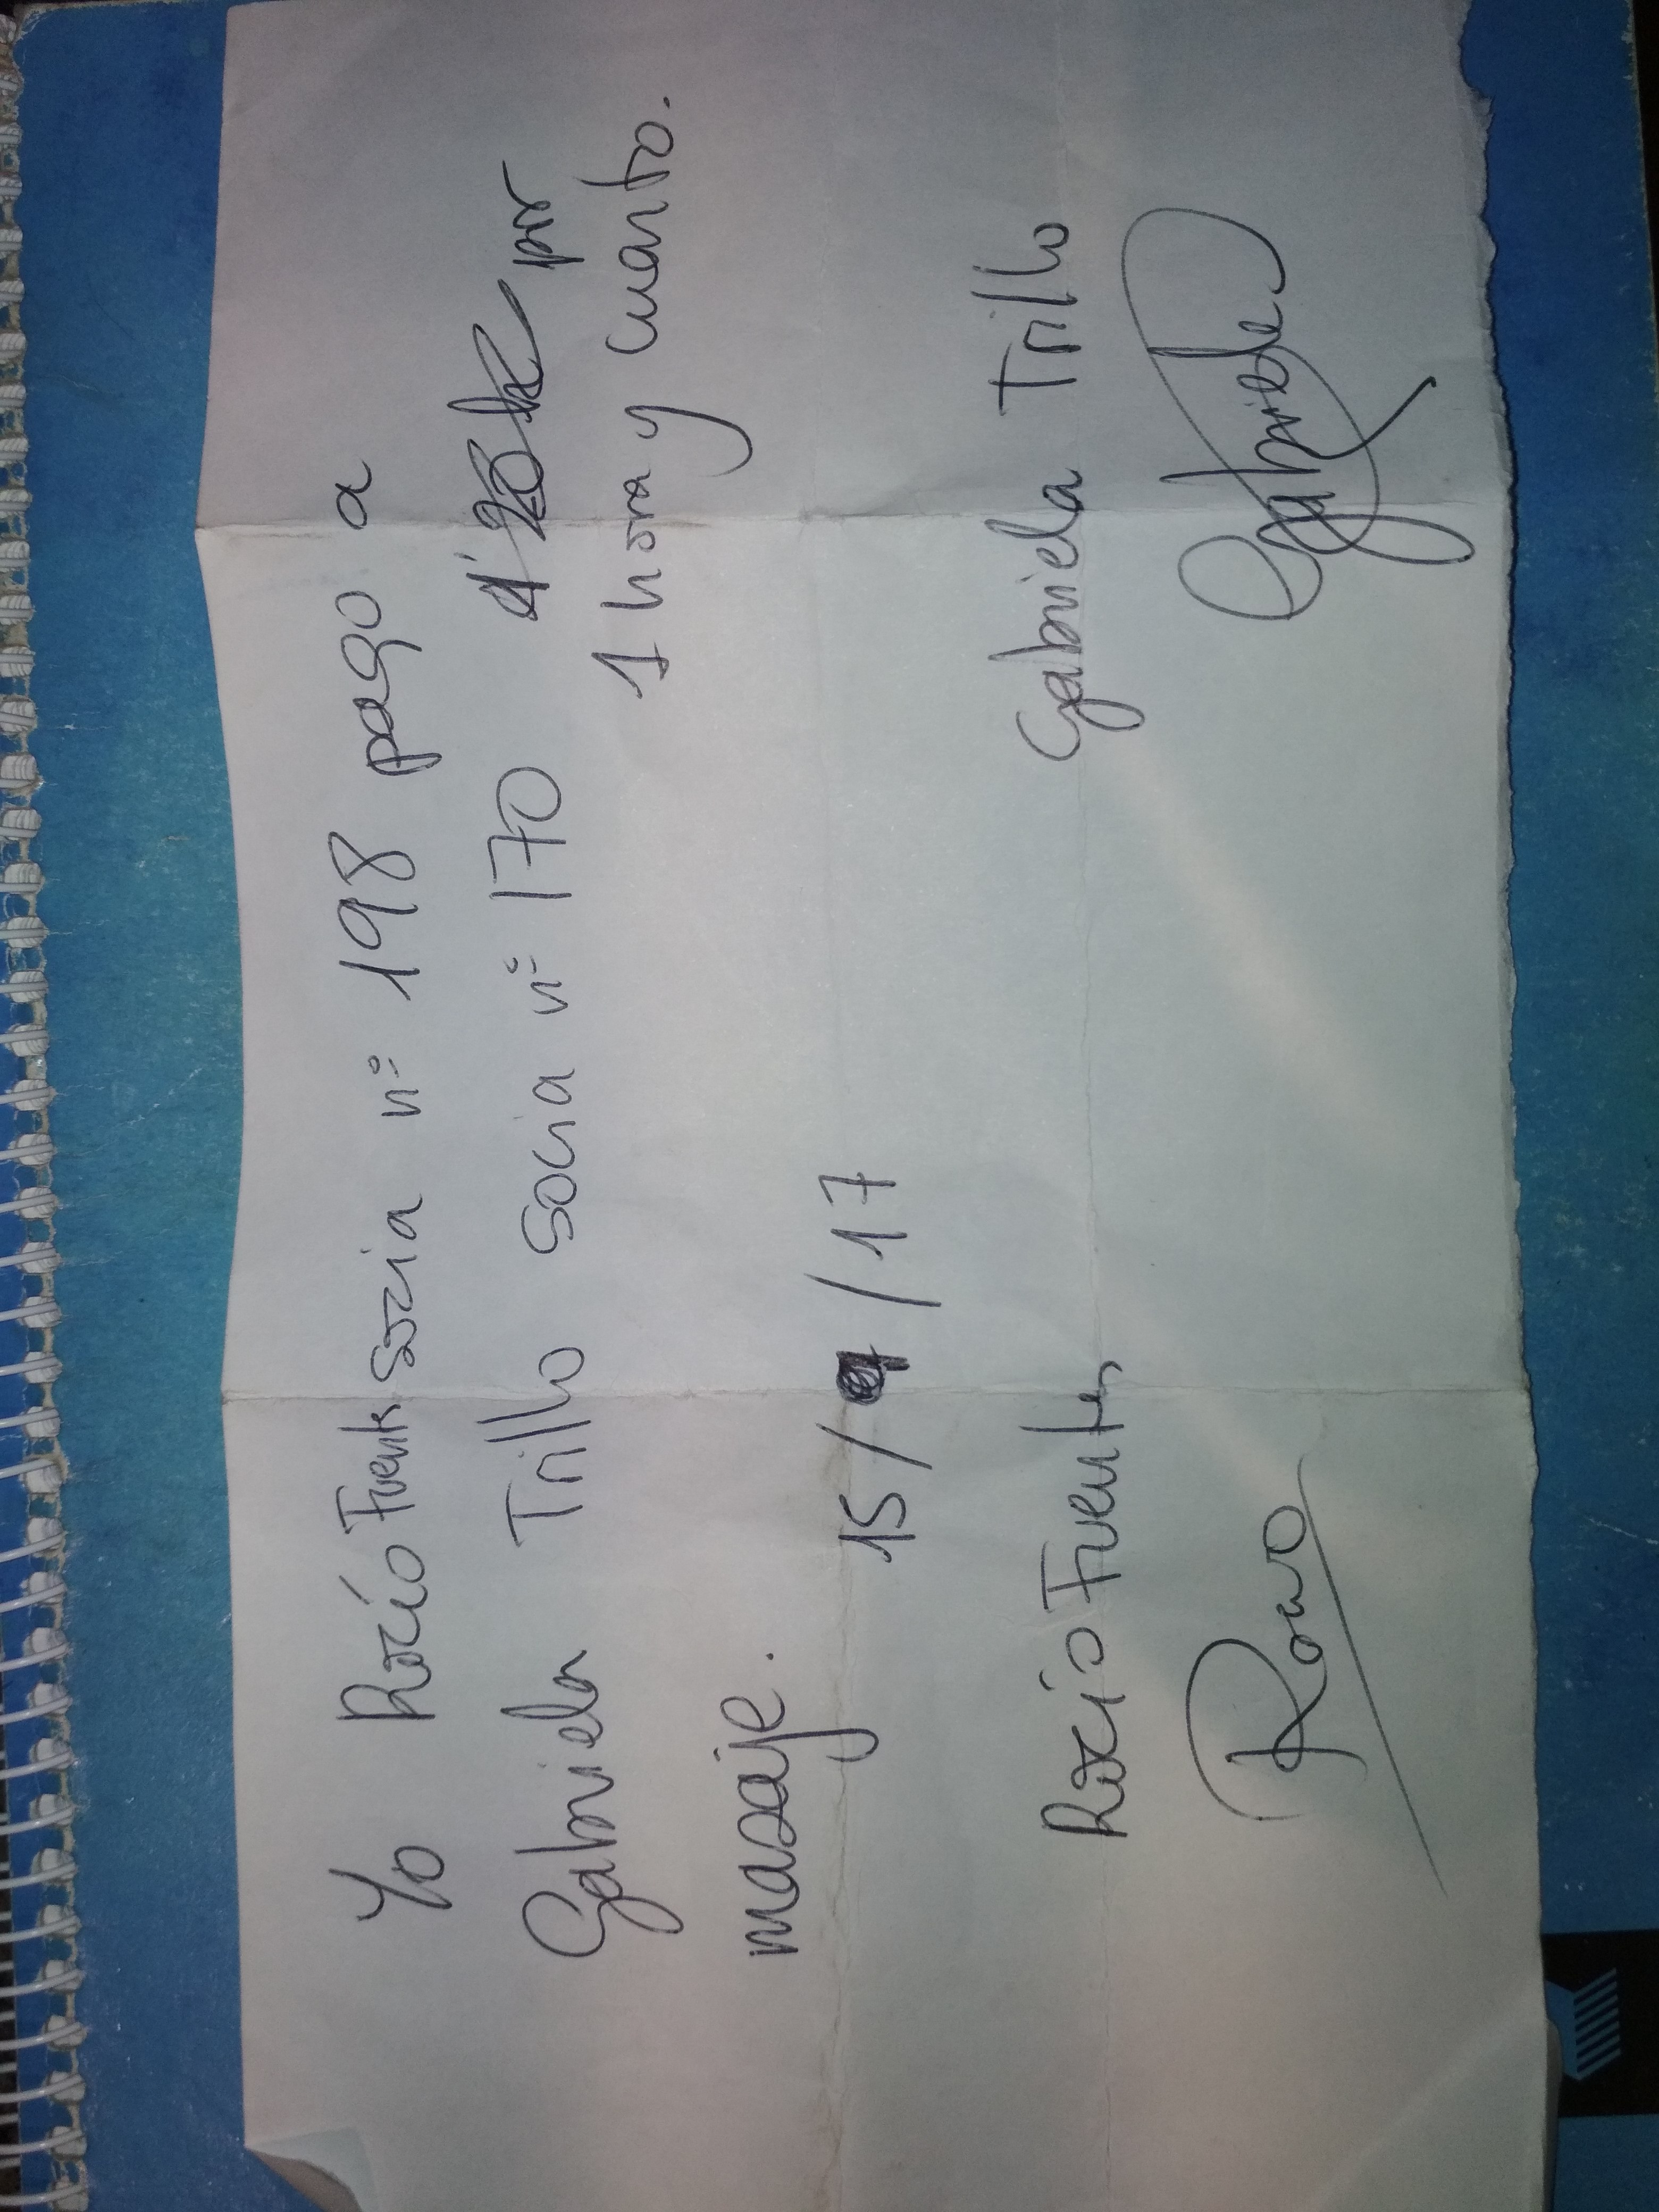 Yo Rocío Fuentes socia nº 198 pago a
Gabriela Trillo socia nº 170 por
1 hora y cuarto.
masaje.
15/9/17
Rocío Fuentes
Gabriela Trillo
Rocío
Gabriela